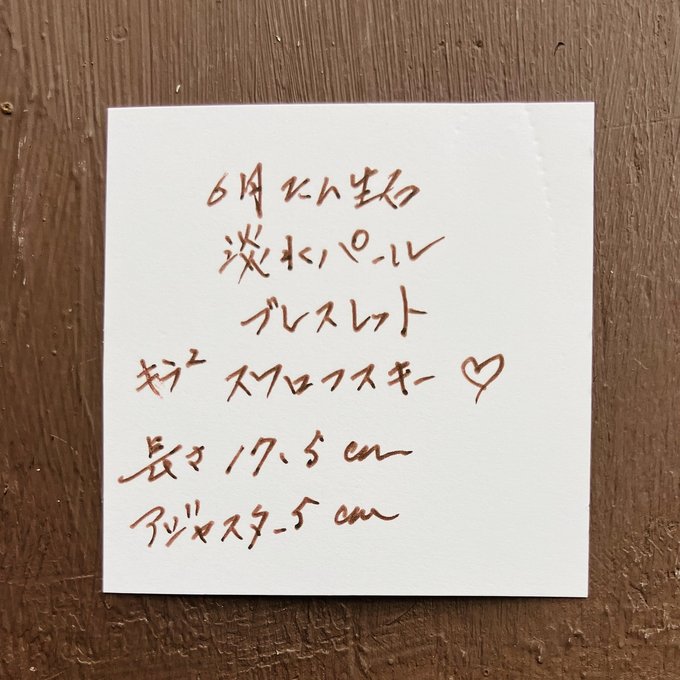 6月たん生石
淡水パール
ブレスレット
キラ² スワロフスキー ♡
長さ 17.5 cm
アジャスター5 cm